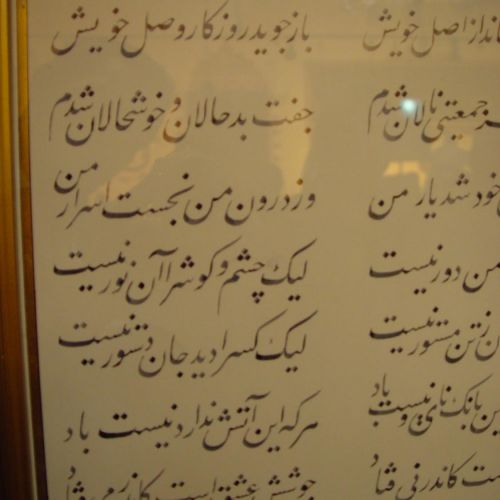 ماند از اصل خویش باز جوید روزگار وصل خویش
جمعیتی نالان شدم جفت بدحالان و خوشحالان شدم
خود شد یار من وز درون من نجست اسرار من
من دور نیست لیک چشم و گوش را آن نور نیست
ز تن مستور نیست لیک کس را دید جان دستور نیست
این بانگ نای و نیست باد هر که این آتش ندارد نیست باد
کاندر نی فتاد جوشش عشق است کاندر می فتاد